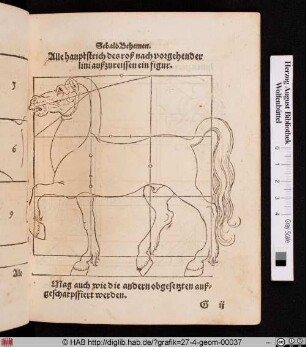 Sebald Behemen.
Alle hauptstrich des roß nach vorgehender
lini aufzureissen ein figur.
3
6
9
Alle
Mag auch wie die andern obgesetzten auf-
gescharpffiert werden.
G ij
Herzog August Bibliothek
Wolfenbüttel
© HAB http://diglib.hab.de/?grafik=27-4-geom-00037